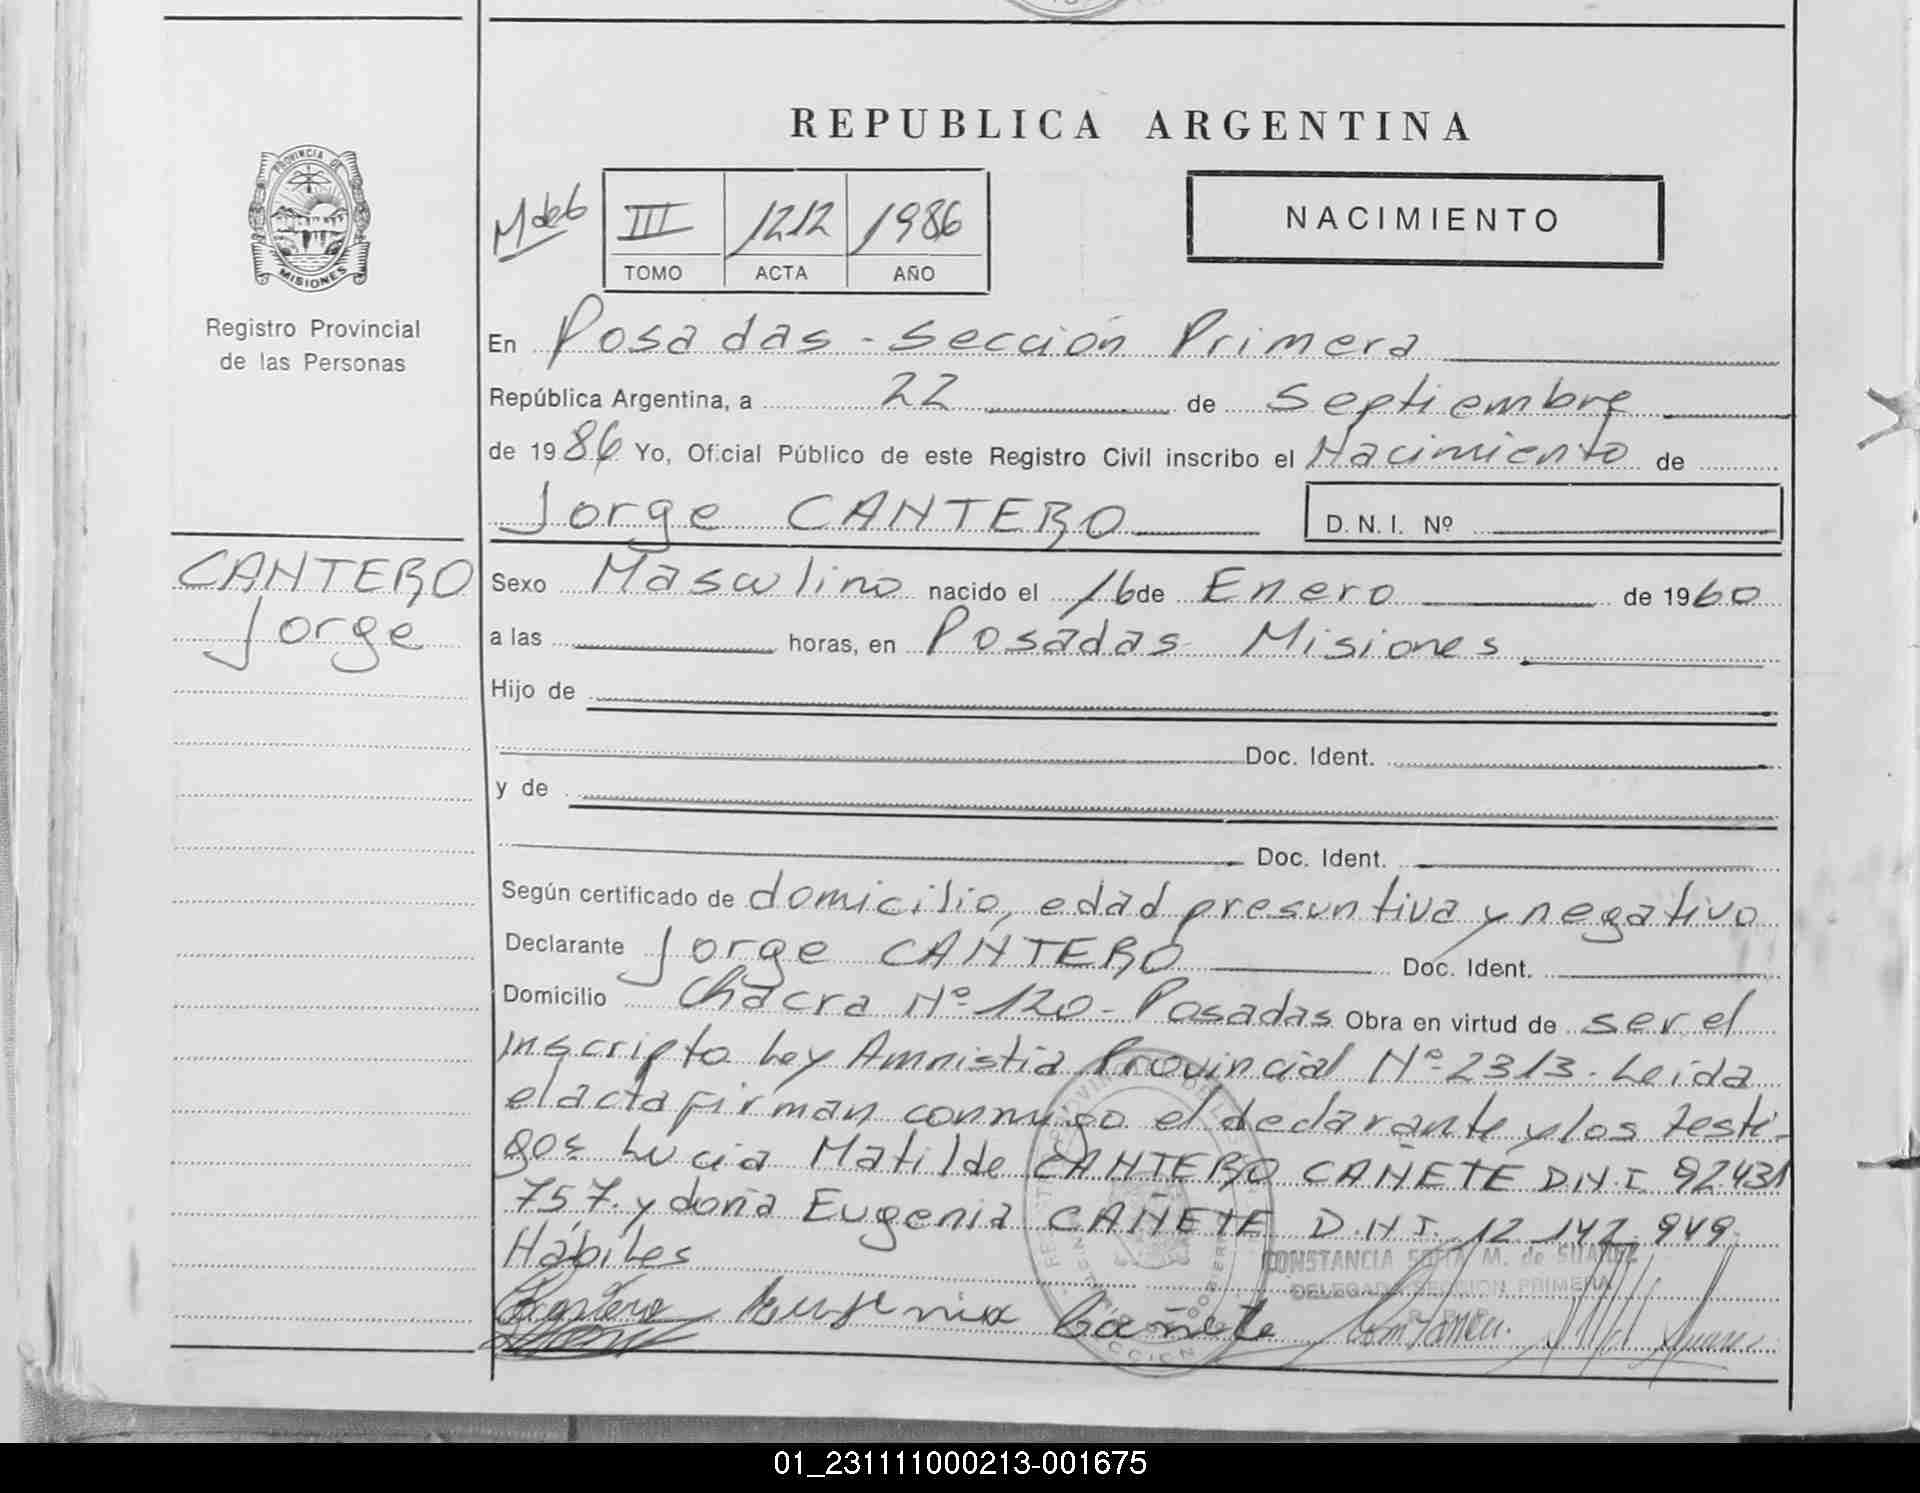 REPUBLICA ARGENTINA
PROVINCIA DE
MISIONES
Registro Provincial
de las Personas
M de 6
III 1212 1986
TOMO ACTA AÑO
NACIMIENTO
En Posadas - Sección Primera
República Argentina, a 22 de Septiembre
de 1986 Yo, Oficial Público de este Registro Civil inscribo el Nacimiento de
Jorge CANTERO D.N.I. Nº
CANTERO
Jorge
Sexo Masculino nacido el 16 de Enero de 1960
a las horas, en Posadas Misiones
Hijo de
Doc. Ident.
y de
Doc. Ident.
Según certificado de domicilio, edad presuntiva y negativo
Declarante Jorge CANTERO Doc. Ident.
Domicilio Chacra Nº 120 - Posadas Obra en virtud de ser el
inscripto Ley Amnistia Provincial Nº 2313. Leida
el acta firman conmigo el declarante y los testi-
gos Lucia Matilde CANTERO CAÑETE D.N.I. 92431
757. y doña Eugenia CAÑETE D.N.I. 12.142.949.
Hábiles
CONSTANCIA SOFIA M. de SUAREZ
DELEGADA SECCION PRIMERA
R. P. P.
Cantero Eugenia Cañete
01_231111000213-001675